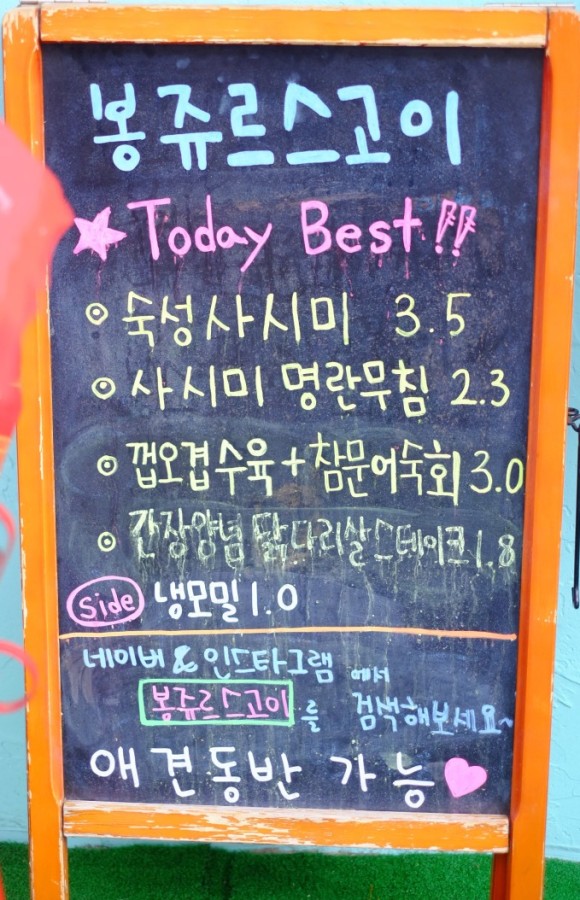 봉쥬르스고이
★Today Best!!
◎ 숙성사시미 3.5
◎ 사시미 명란무침 2.3
◎ 껍오겹수육+참문어숙회 3.0
◎ 간장양념 닭다리살스테이크 1.8
Side 냉모밀 1.0
네이버 & 인스타그램 에서
봉쥬르스고이 를 검색해보세요~
애견동반 가능♥